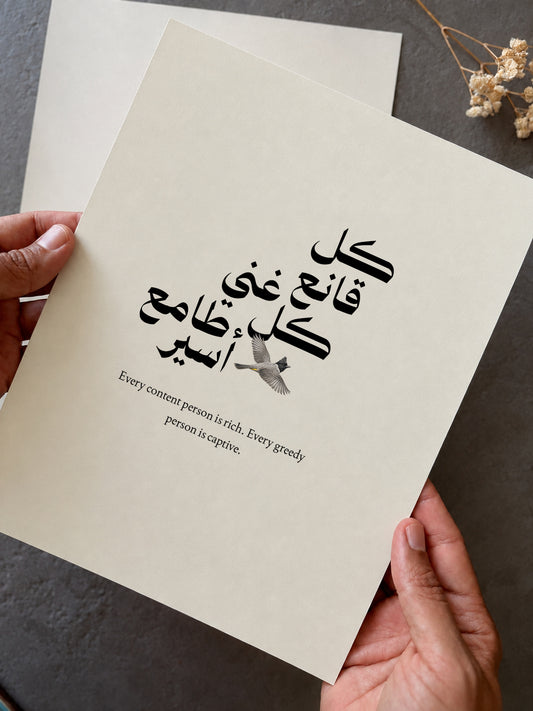 كل
قانع غني
كل طامع
أسير
Every content person is rich. Every greedy
person is captive.